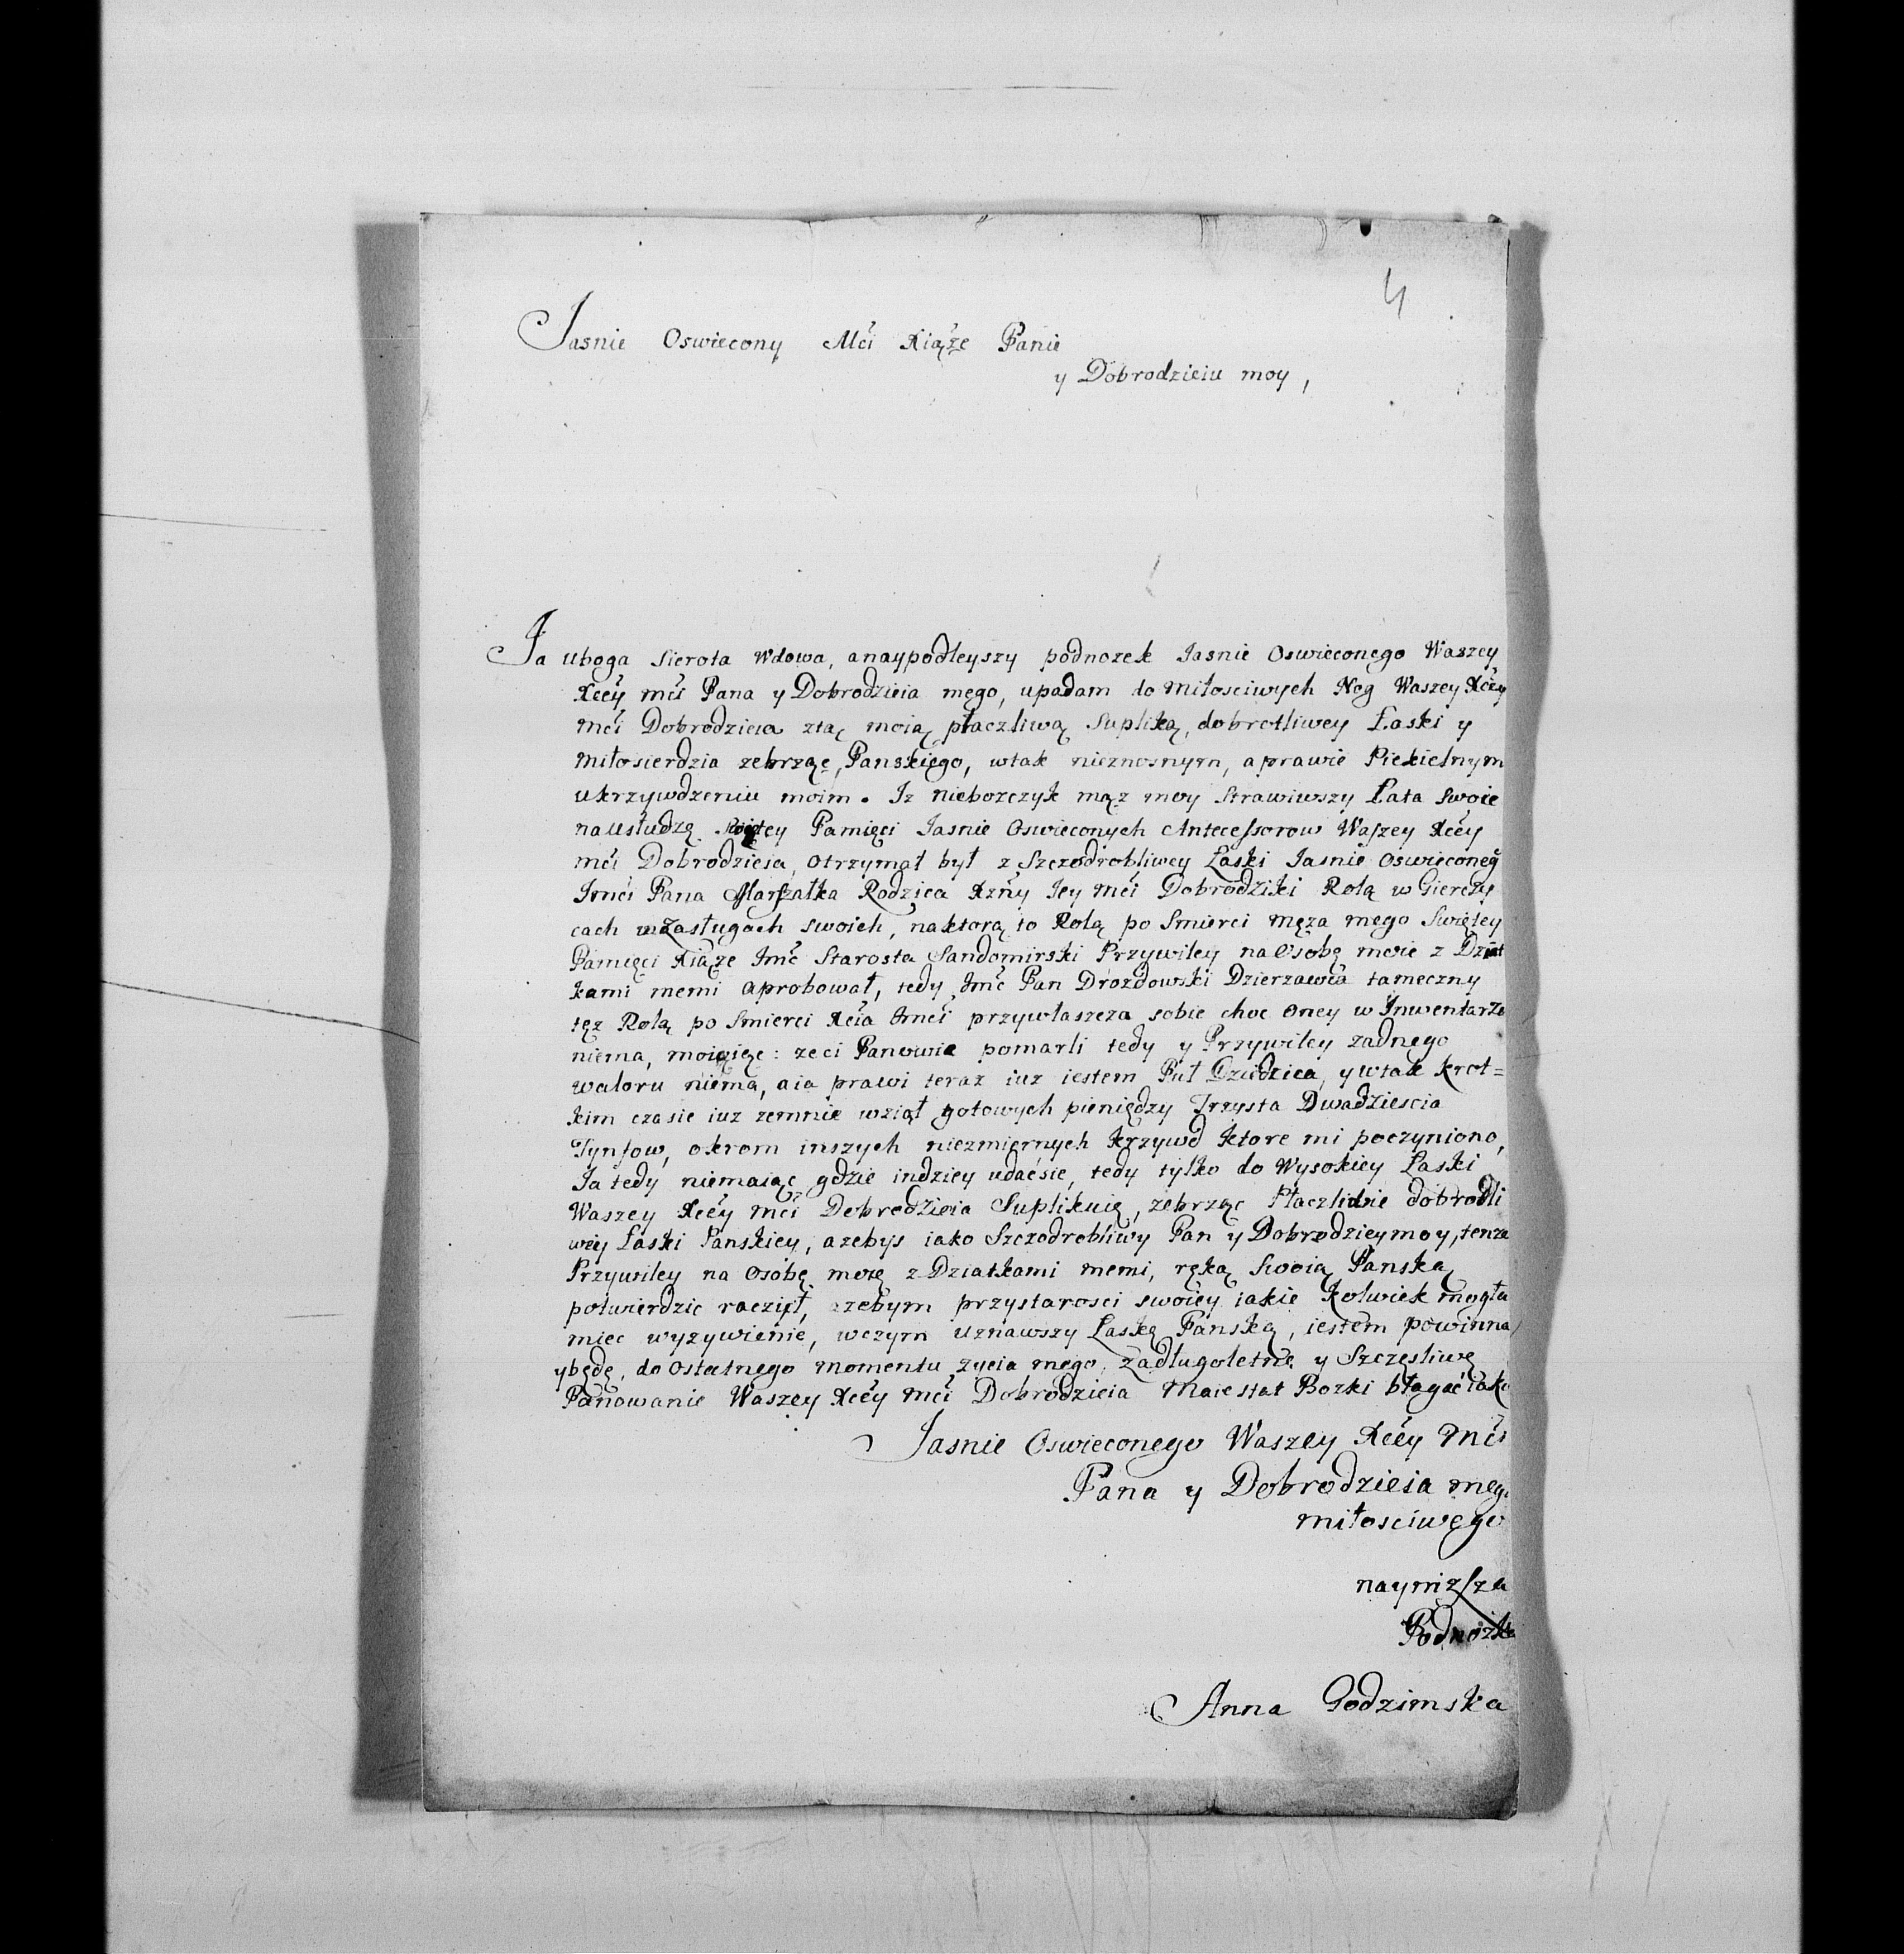 4
Jasnie Oswiecony Mći Xiąże Panie
y Dobrodzieiu moy,
Ja uboga Sierota Wdowa, anaypodleyszy podnozek Jasnie Oswieconego Waszey
Xcey mći Pana y Dobrodzieia mego, upadam do Miłosciwych Nog Waszey Xcey
mći Dobrodzieia ztą moią płaczliwą Supliką, dobrotliwey Łaski y
miłosierdzia zebrząc, Panskiego, wtak nieznosnym, aprawie Piekielnym
ukrzywdzeniu moim. Iz nieboszczyk mąz moy Strawiwszy Lata Swoie
nausłudze Swiętey Pamięci Jasnie Oswieconych Antecessorow Waszey Xcey
mći Dobrodzieia, otrzymał był z Szczodrobliwey Łaski Jasnie Oswieconeg
Jmći Pana Marszałka Rodzica Xzny Jey Mći Dobrodziki Rolą w Gierczy
cach wzasługach swoich, naktorą to Rolą po Smierci męza mego Swiętey
Pamięci Xiąze Jmć Starosta Sandomirski Przywiley naOsobę moie z Dziat
kami memi aprobował, tedy Jmć Pan Drozdowski Dzierzawca tameczny
tęz Rolą po Smierci Xcia Jmći przywłaszcza sobie choc oney w Inwentarzu
niema, moiąięc: ze ci Panowie pomarli tedy y Przywiley zadnego
waloru niema, aia prawi teraz iuz iestem Puł Dziedzica, ywtak krot=
kim czasie iuz zemnie wziął gotowych pieniędzy Trzysta Dwadziescia
Tynfow, okrom inszych niezmiernych krzywd ktore mi poczyniono,
Ja tedy niemaiąc gdzie indziey udacsie, tedy tylko do Wysokiey Łaski
Waszey Xcey mći Dobrodzieia Suplikuię, zebrząc Płaczliwie dobrodli
wey Łaski Panskiey, azebys iako Szczodrobliwy Pan y Dobrodzieymoy, tenze
Przywiley na Osobę moię z Dziatkami memi, ręką Swoią Panską
potwierdzic raczył, azebym przystarosci swoiey iakie Kolwiek mogła
miec wyzywienie, wczym uznawszy Łaskę Panską, iestem powinna
ybędę, do ostatnego momentu zycia mego, zadługoletne y Szczęsliwe
Panowanie Waszey Xcey Mći Dobrodzieia Maiestat Bozki błagać iako
Jasnie Oswieconego Waszey Xcey Mći
Pana y Dobrodzieia mego
miłosciwego
naynizsza
Podnozka
Anna Godzimska